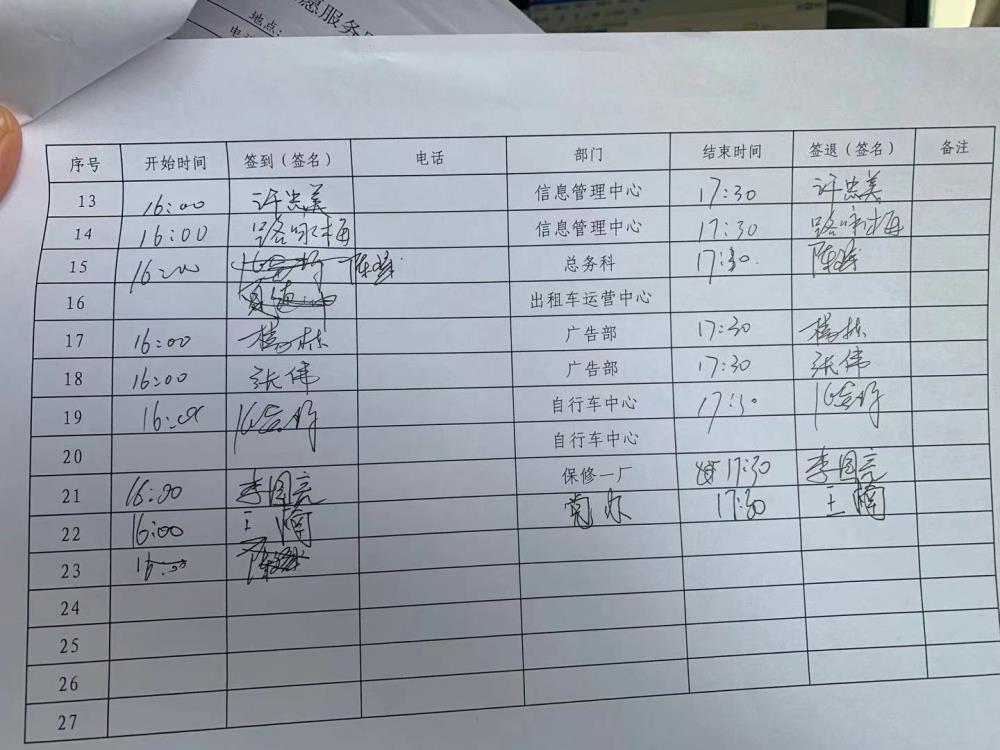 愿服务
地点：
序号 开始时间 签到（签名） 电话 部门 结束时间 签退（签名） 备注
13 16:00 许忠美 信息管理中心 17:30 许忠美
14 16:00 路咏梅 信息管理中心 17:30 路咏梅
15 16:00 陈 总务科 17:30. 陈
16 出租车运营中心
17 16:00 杨栋 广告部 17:30 杨栋
18 16:00 张伟 广告部 17:30 张伟
19 16:00 自行车中心 17:30
20 自行车中心
21 16:00 李国亮 保修一厂 17:30 李国亮
22 16:00 王 党办 17:30 王
23 16:00 陈
24
25
26
27